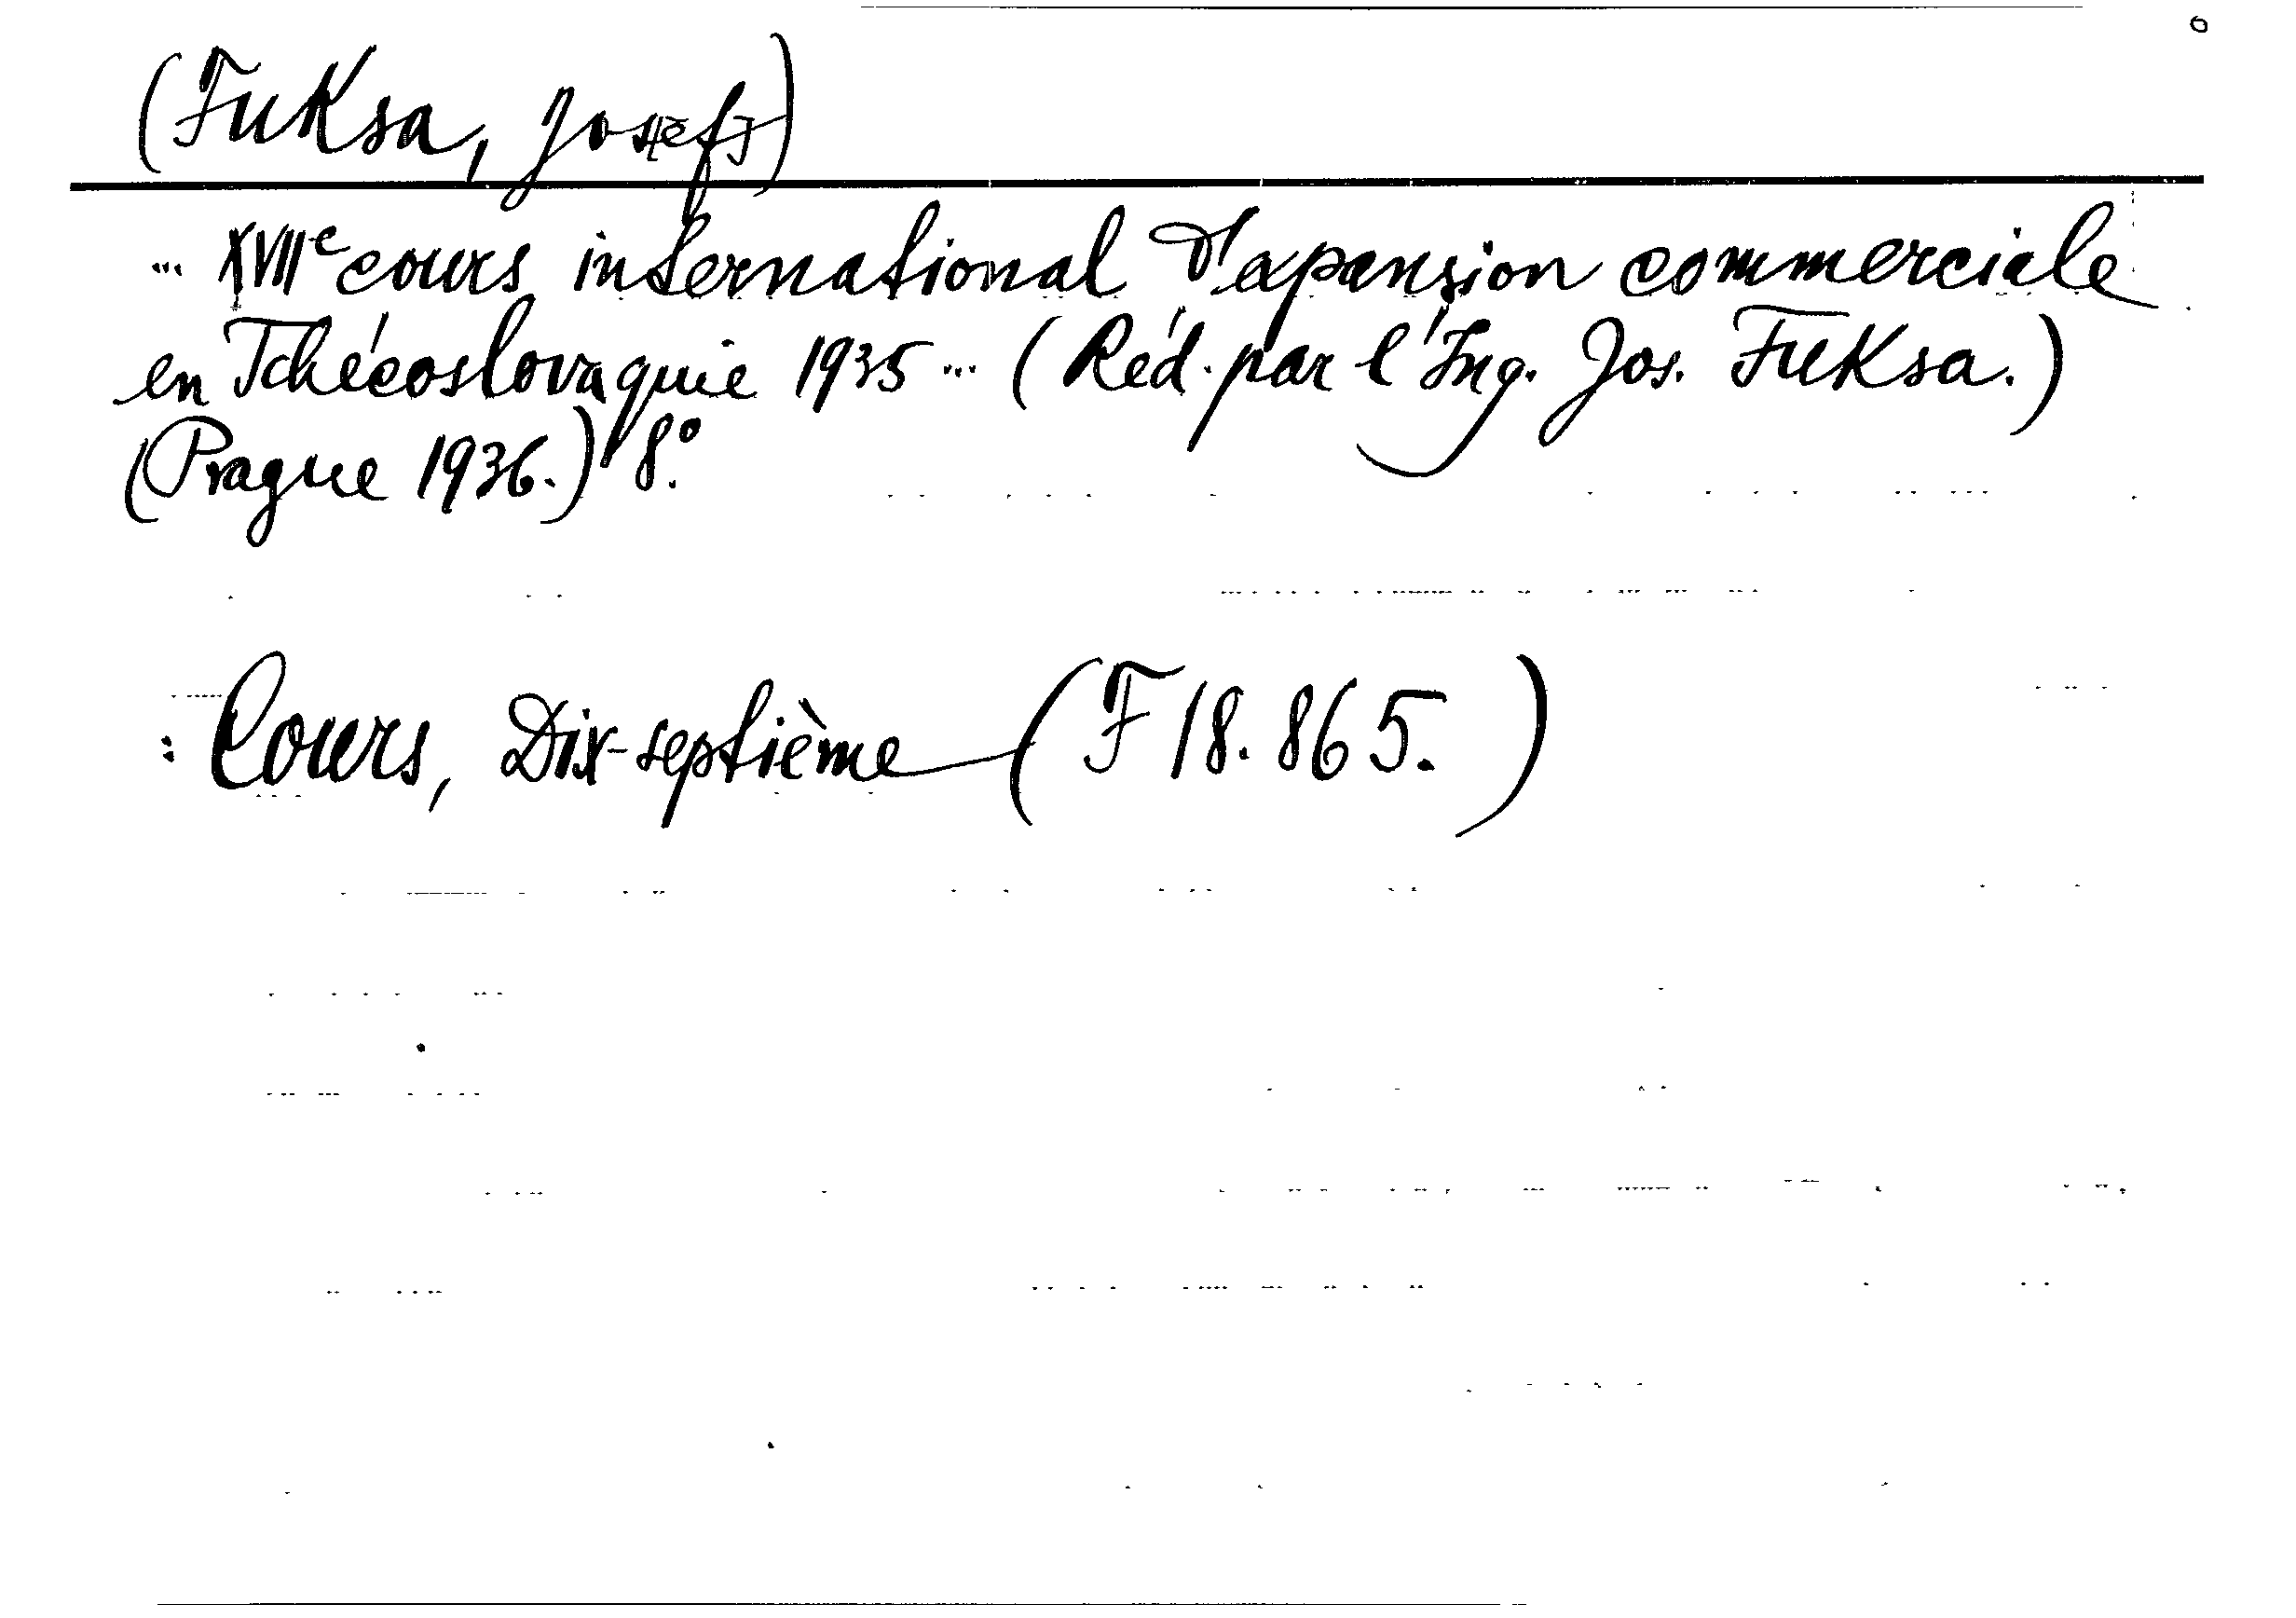 (Fuksa, Jos[ef])
... XVIIe cours international d'expansion commerciale
en Tchécoslovaquie 1935 ... (Réd. par l'Ing. Jos. Fuksa.)
(Prague 1936.) 8°.
: Cours, Dix-septième (F 18.865.)